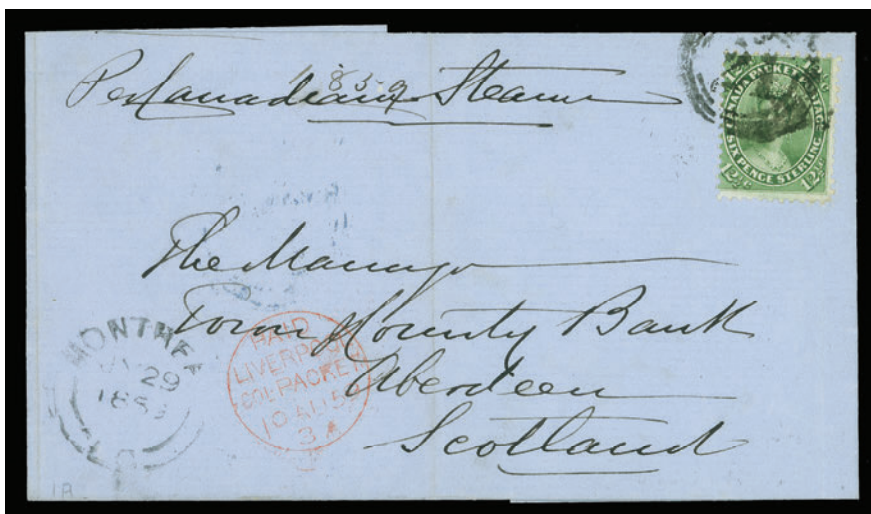 Per Canadian Steamer
12½c
CANADA PACKET POSTAGE
SIX PENCE STERLING
12½c 12½c
The Manager
Town & County Bank
Aberdeen
Scotland
MONTREAL
29
185
PAID
LIVERPOOL
COL. PACKET
10 AU 5
3 A
1A